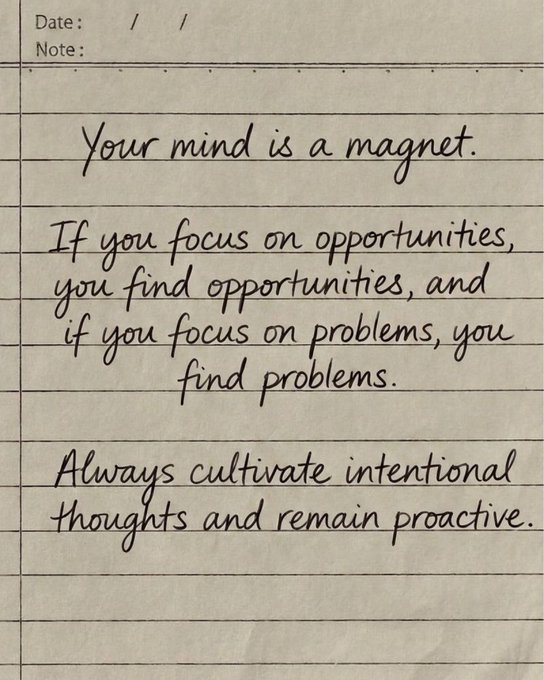 Date: / /
Note:
Your mind is a magnet.
If you focus on opportunities,
you find opportunities, and
if you focus on problems, you
find problems.
Always cultivate intentional
thoughts and remain proactive.